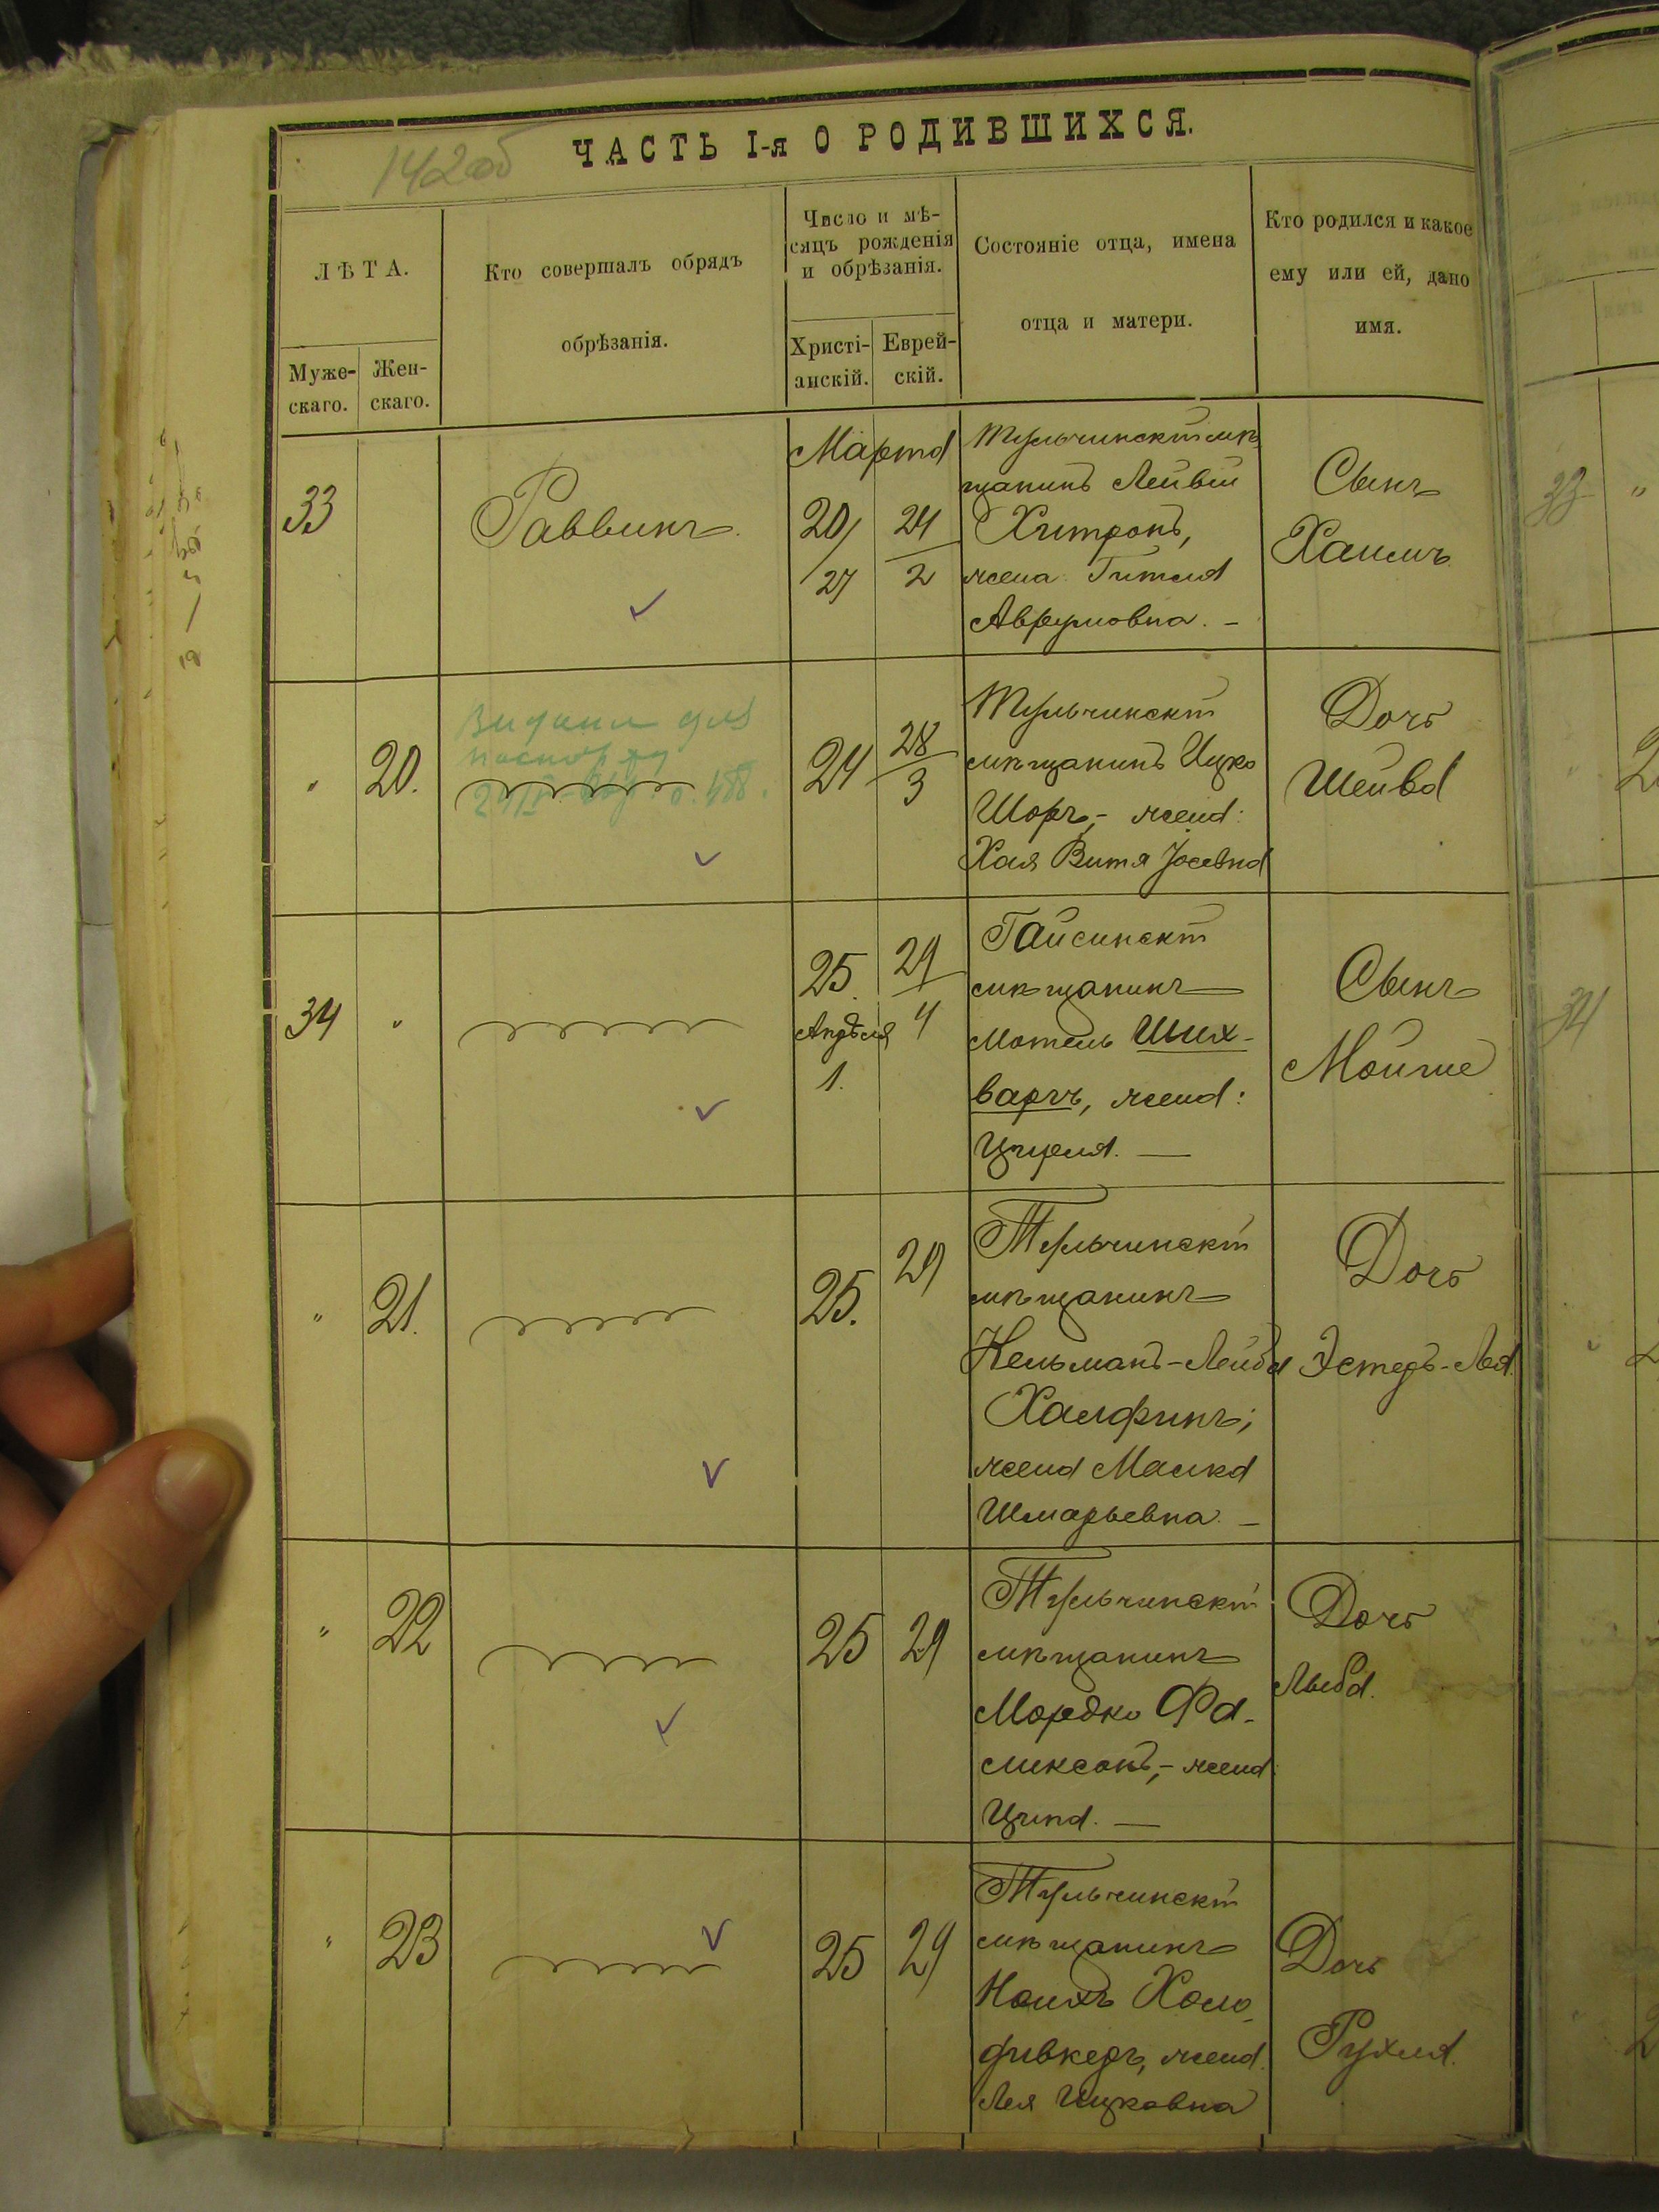 142об
ЧАСТЬ I-я О РОДИВШИХСЯ.
ЛѢТА.
Муже-
скаго.
Жен-
скаго.
Кто совершалъ обрядъ
обрѣзанія.
Число и мѣ-
сяцъ рожденія
и обрѣзанія.
Христі-
анскій.
Еврей-
скій.
Состояніе отца, имена
отца и матери.
Кто родился и какое
ему или ей, дано
имя.
33
Раввинъ.
Марта
20/
27
24
2
Тульчинскій мѣ
щанинъ Лейвій
Хитронъ,
жена: Гитля
Аврумовна. –
Сынъ
Хаимъ
"
20.
Видани для
паспорту
24
28
3
Тульчинскій
мѣщанинъ Ицко
Шоръ, – жена:
Хая Витя Іосевна
Дочь
Шейва
34
"
25.
Апрѣля
1.
29
4
Гайсинскій
мѣщанинъ
Мотель Ших-
варгъ, жена:
Цируля. —
Сынъ
Мойше
"
21.
25.
29
Тульчинскій
мѣщанинъ
Кельманъ-Лейба
Халфинъ;
жена Малка
Шмарьевна. –
Дочь
Эстеръ-Лея.
"
22
25
29
Тульчинскій
мѣщанинъ
Мордко Фа-
ликсонъ, – жена:
Ципа. —
Дочь
Либа.
"
23
25
29
Тульчинскій
мѣщанинъ
Ноихъ Холо-
дивкеръ, жена
Лея Ицковна
Дочь
Рухля.
33
"
34